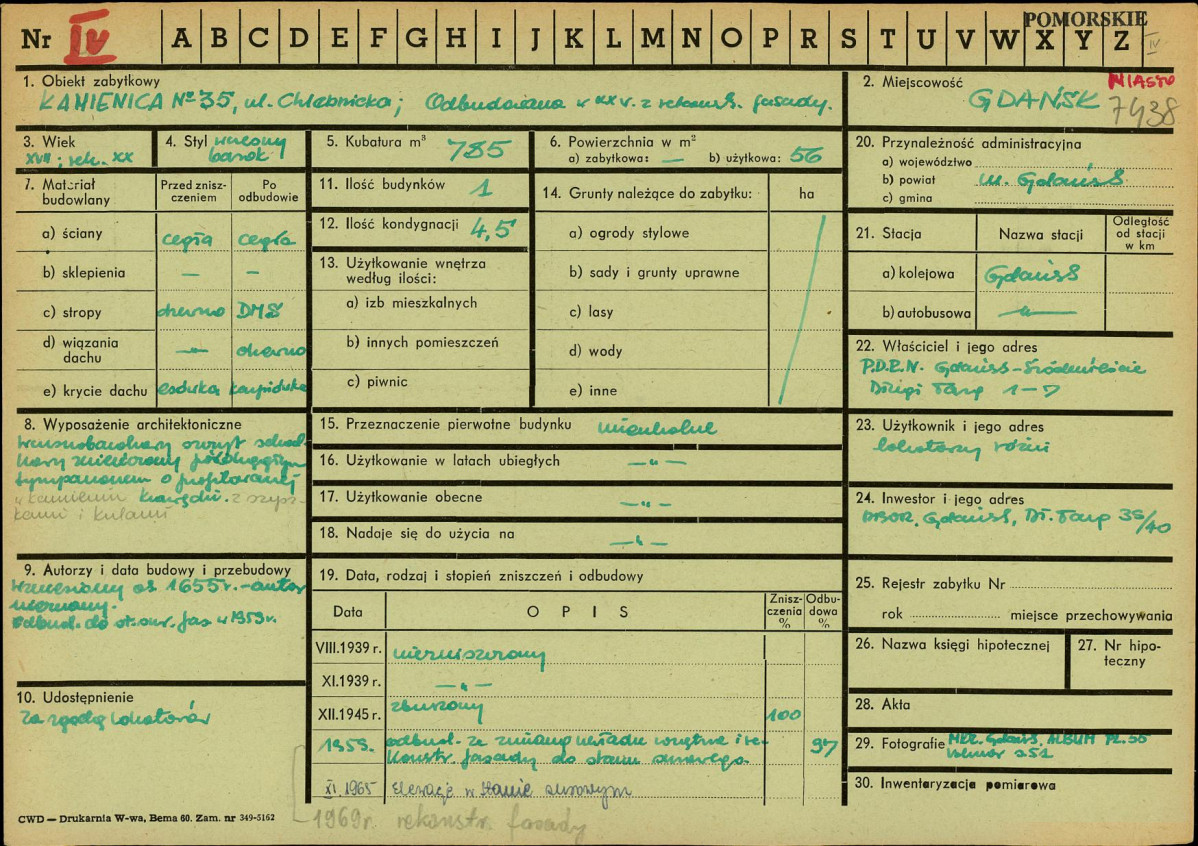 POMORSKIE
Nr IV A B C D E F G H I J K L M N O P R S T U V W X Y Z IV
1. Obiekt zabytkowy
KAMIENICA Nº 35, ul. Chlebnicka; Odbudowana w XX w. z rekonstr. fasady.
2. Miejscowość MIASTO
GDAŃSK 7438
3. Wiek
XVII; rek. XX
4. Styl wczesny
barok
5. Kubatura m³ 785
6. Powierzchnia w m²
a) zabytkowa: — b) użytkowa: 56
7. Materiał budowlany
Przed zniszczeniem
Po odbudowie
a) ściany cegła cegła
b) sklepienia — —
c) stropy drewno DMS
d) wiązania dachu —„— drewno
e) krycie dachu esówka karpiówka
8. Wyposażenie architektoniczne
Wczesnobarokowy szczyt schod-
kowy zwieńczony półokrągłym
tympanonem o profilowanej
w kamieniu krawędzi. z szysz-
kami i kulami
9. Autorzy i data budowy i przebudowy
wzniesiony ok. 1655 r. – autor
nieznany.
odbud. do st. sur. fas w 1959 r.
10. Udostępnienie
Za zgodą lokatorów
11. Ilość budynków 1
12. Ilość kondygnacji 4,5
13. Użytkowanie wnętrza
według ilości:
a) izb mieszkalnych
b) innych pomieszczeń
c) piwnic
14. Grunty należące do zabytku: ha
a) ogrody stylowe
b) sady i grunty uprawne
c) lasy
d) wody
e) inne
15. Przeznaczenie pierwotne budynku mieszkalne
16. Użytkowanie w latach ubiegłych —„—
17. Użytkowanie obecne —„—
18. Nadaje się do użycia na —„—
19. Data, rodzaj i stopień zniszczeń i odbudowy
Data OPIS Zniszczenia % Odbudowa %
VIII.1939 r. niezniszczony
XI.1939 r. —„—
XII.1945 r. zburzony 100
1959. odbud. ze zmianą układu wnętrza i re-
konstr. fasady do stanu surowego 97
XI.1965 Elewacje w stanie surowym
1969 r. rekonstr. fasady
20. Przynależność administracyjna
a) województwo
b) powiat m. Gdańsk
c) gmina
21. Stacja Nazwa stacji Odległość od stacji w km
a) kolejowa Gdańsk
b) autobusowa —„—
22. Właściciel i jego adres
P.D.R.N. Gdańsk-Śródmieście
Długi Targ 1-7
23. Użytkownik i jego adres
lokatorzy różni
24. Inwestor i jego adres
DBOR, Gdańsk, Dł. Targ 38/40
25. Rejestr zabytku Nr
rok miejsce przechowywania
26. Nazwa księgi hipotecznej
27. Nr hipoteczny
28. Akta
29. Fotografie MKZ. Gdańsk, ALBUM
30. Inwentaryzacja pomiarowa
CWD — Drukarnia W-wa, Bema 60. Zam. nr 349-5162